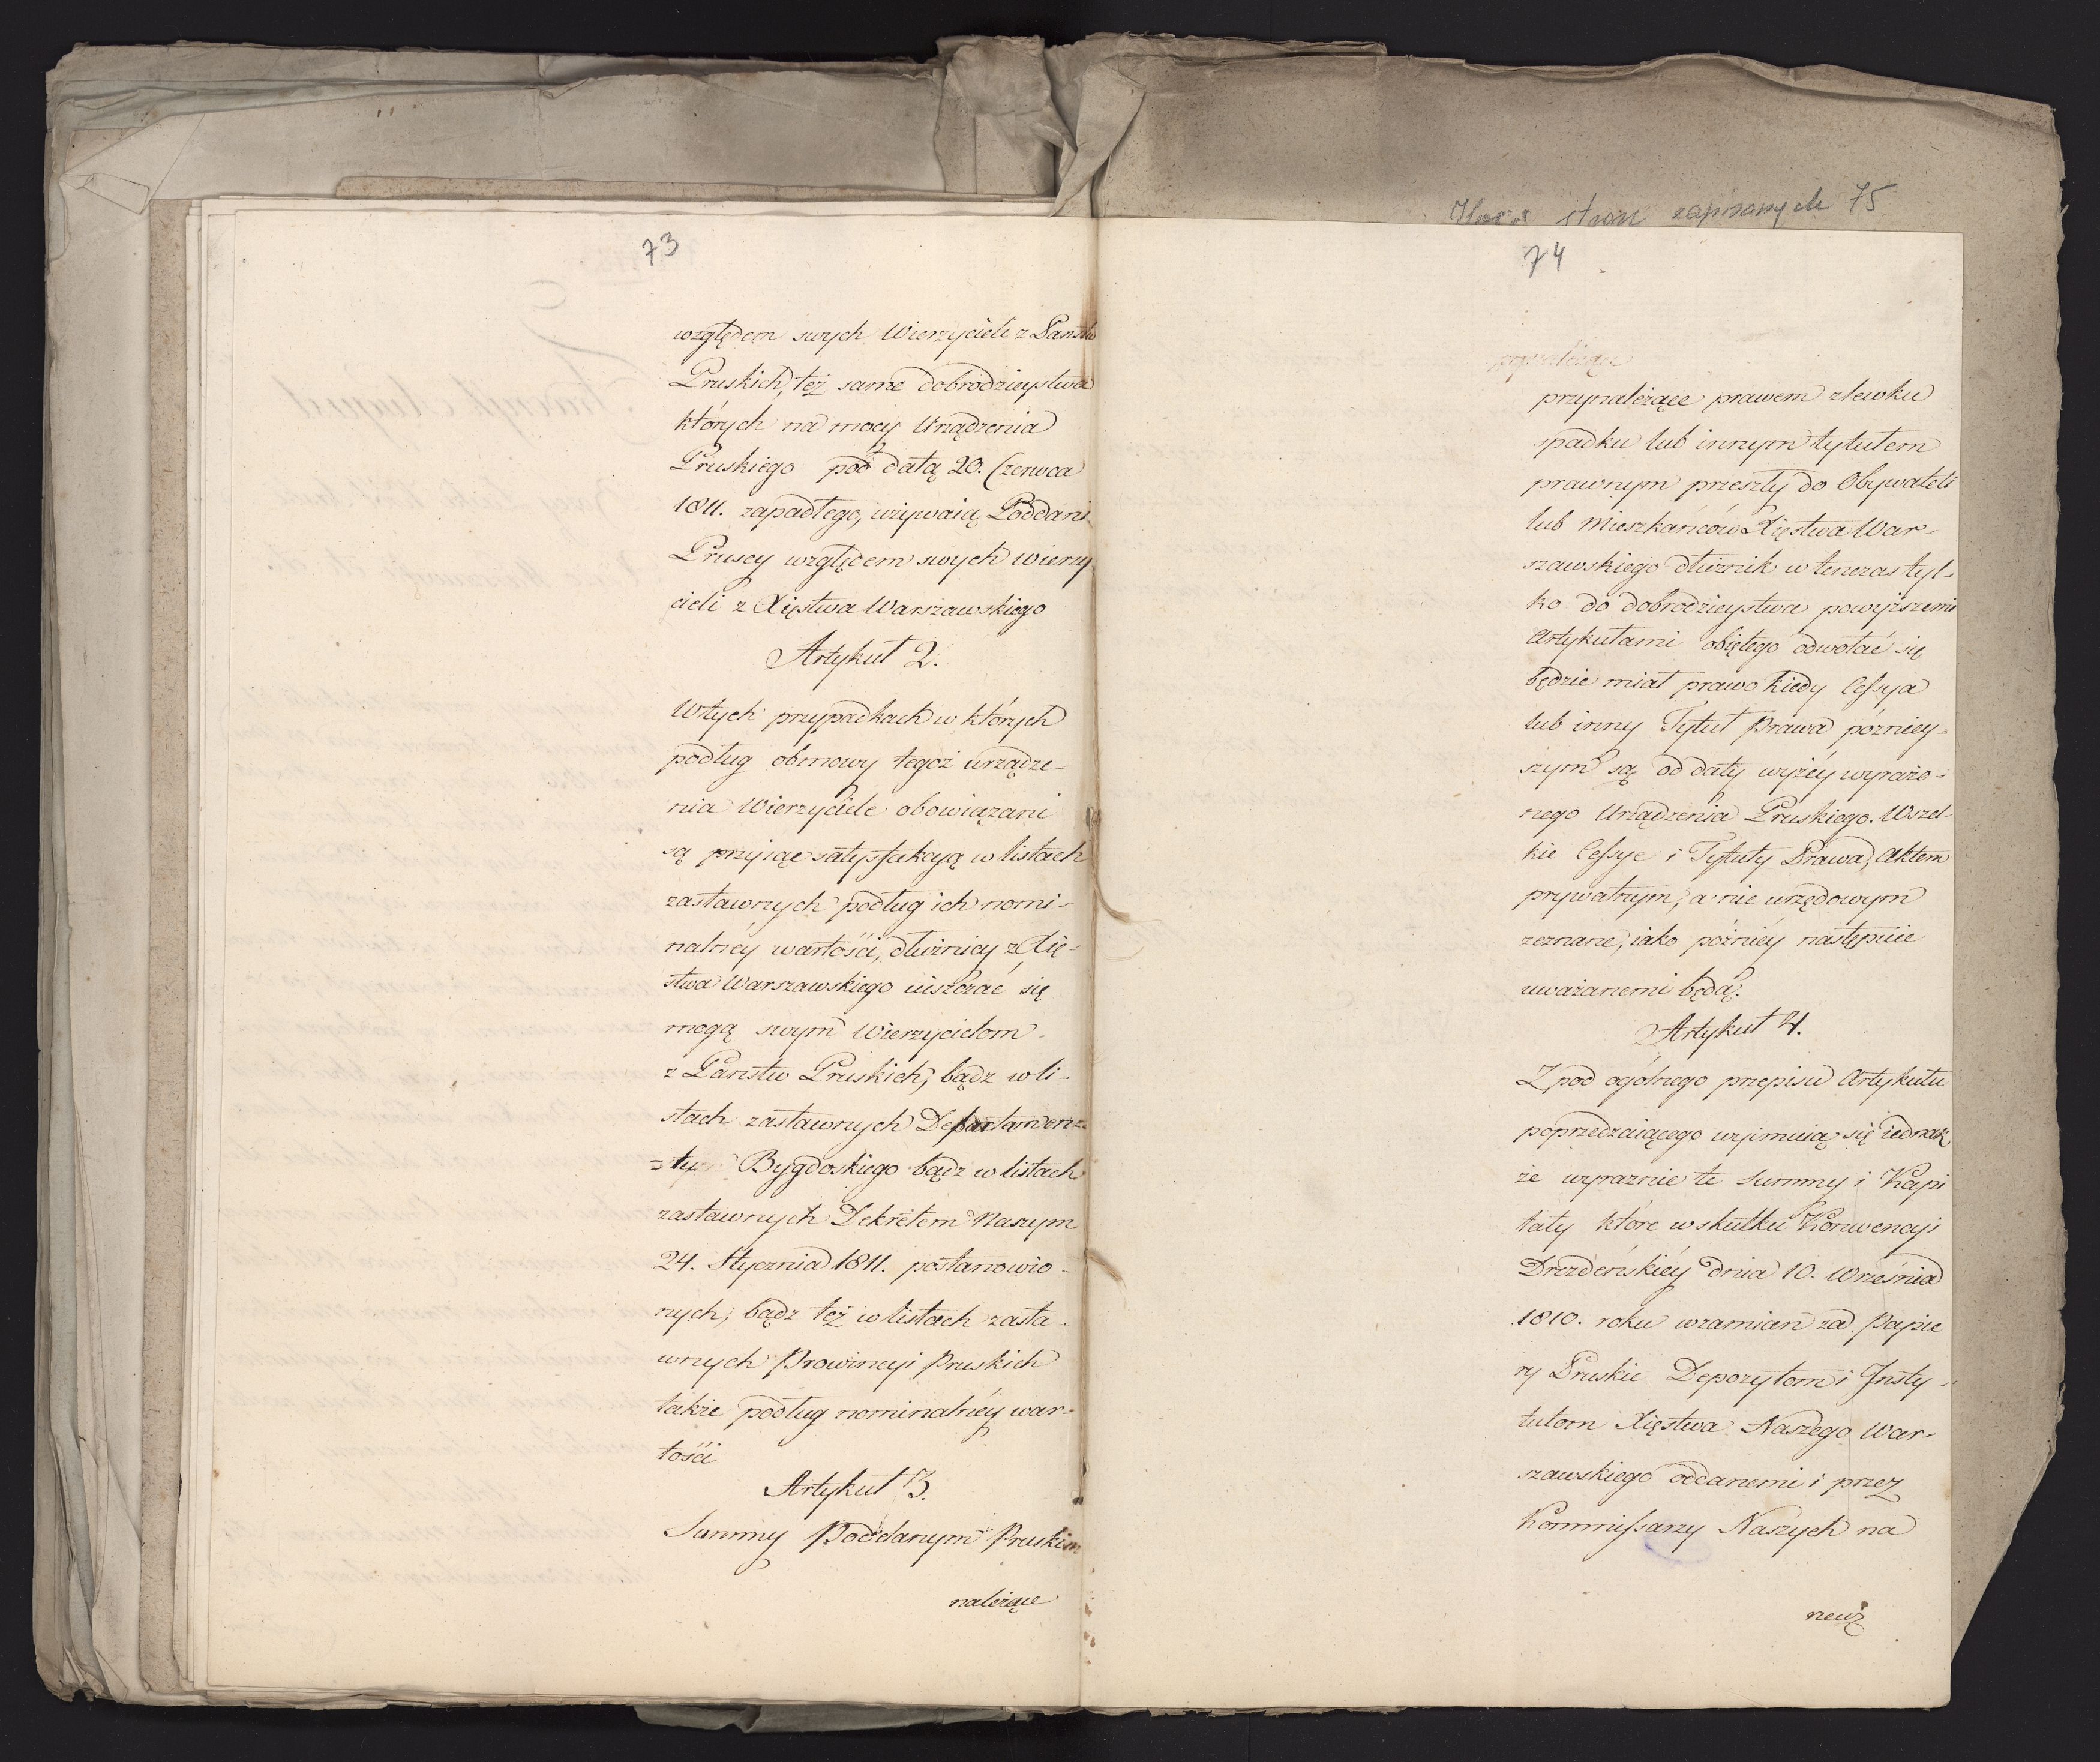 73
względem swych Wierzycieli z Państw
Pruskich, też same dobrodzieystwa
których na mocy Urządzenia
Pruskiego pod datą 20. Czerwca
1811. zapadłego, używaią Poddani
Prusey względem swych wierzy
cieli z Xięstwa Warszawskiego
Artykuł 2.
W tych przypadkach w których
podług obmowy tegoż urządze-
nia Wierzyciele obowiązani
są przyiąć satysfakcyą w listach
zastawnych podług ich nomi-
nalnéy wartości, dłużnicy z Xię-
stwa Warszawskiego uiszczać się
mogą swym Wierzycielom
z Państw Pruskich, bądz w li-
stach zastawnych Departamen=
Bygdoskiego bądz w listach
zastawnych Dekretem Naszym
24. Stycznia 1811. postanowio-
nych, bądz też w listach zasta-
wnych Prowincyi Pruskich
także podług nominalnéy war-
tości
Artykuł 3.
Summy Poddanym Pruskim
należące
stron zapisanych 75
74
przynależące prawem zlewku
spadku lub innym tytułem
prawnym przeszły do Obywateli
lub Mieszkańców Xięstwa War-
szawskiego dłużnik w tenczas tyl-
ko do dobrodzieystwa powyższemi
Artykułami obiętego odwołać się
będzie miał prawo kiedy Cessya
lub inny Tytuł Prawa późniey-
szym są od daty wyżéy wyrażo-
nego Urządzenia Pruskiego. Wszel-
kie Cessye i Tytuły Prawa, Aktem
prywatnym, a nie urzędowym
zeznane, iako późniéy nastepuie
uważanemi będą.
Artykuł 4.
Z pod ogólnego przepisu Artykułu
poprzedzaiącego wyimuią się iednak
że wyraznie te Summy i Kapi
tały które w skutku Konwencyi
Drezdeńskiéy dnia 10. Września
1810. roku wzamian za Papie
ry Pruskie Depozytom i Insty-
tutom Xięstwa Naszego War-
szawskiego oddanemi i przez
Kommissarzy Naszych na